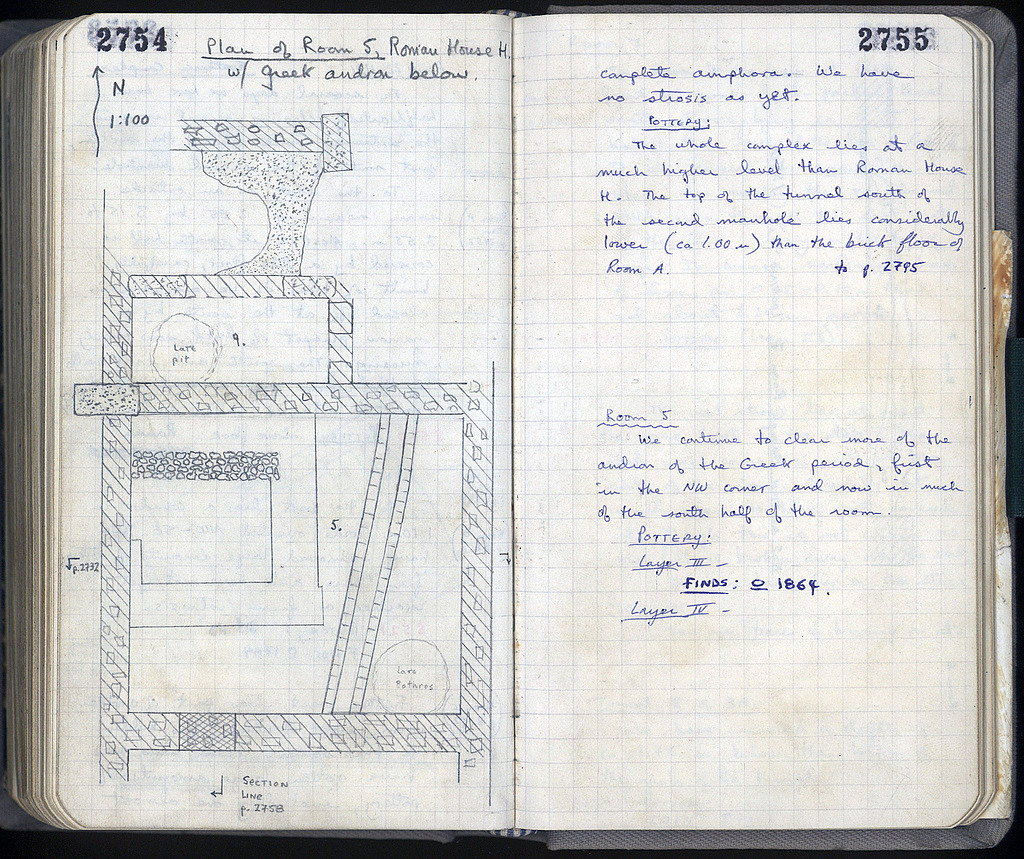 2754
Plan of Room 5, Roman House H.
w/ Greek andron below.
N
1:100
Late
pit
9.
5.
p.2732
Late
Bothros
SECTION
LINE
p. 2758
2755
complete amphora. We have
no strosis as yet.
POTTERY:
The whole complex lies at a
much higher level than Roman House
H. The top of the tunnel south of
the second manhole lies considerably
lower (ca 1.00 m) than the brick floor of
Room A.
to p. 2795
Room 5
We continue to clear more of the
andron of the Greek period, first
in the NW corner and now in much
of the south half of the room.
POTTERY:
Layer III -
FINDS: O 1864.
Layer IV -